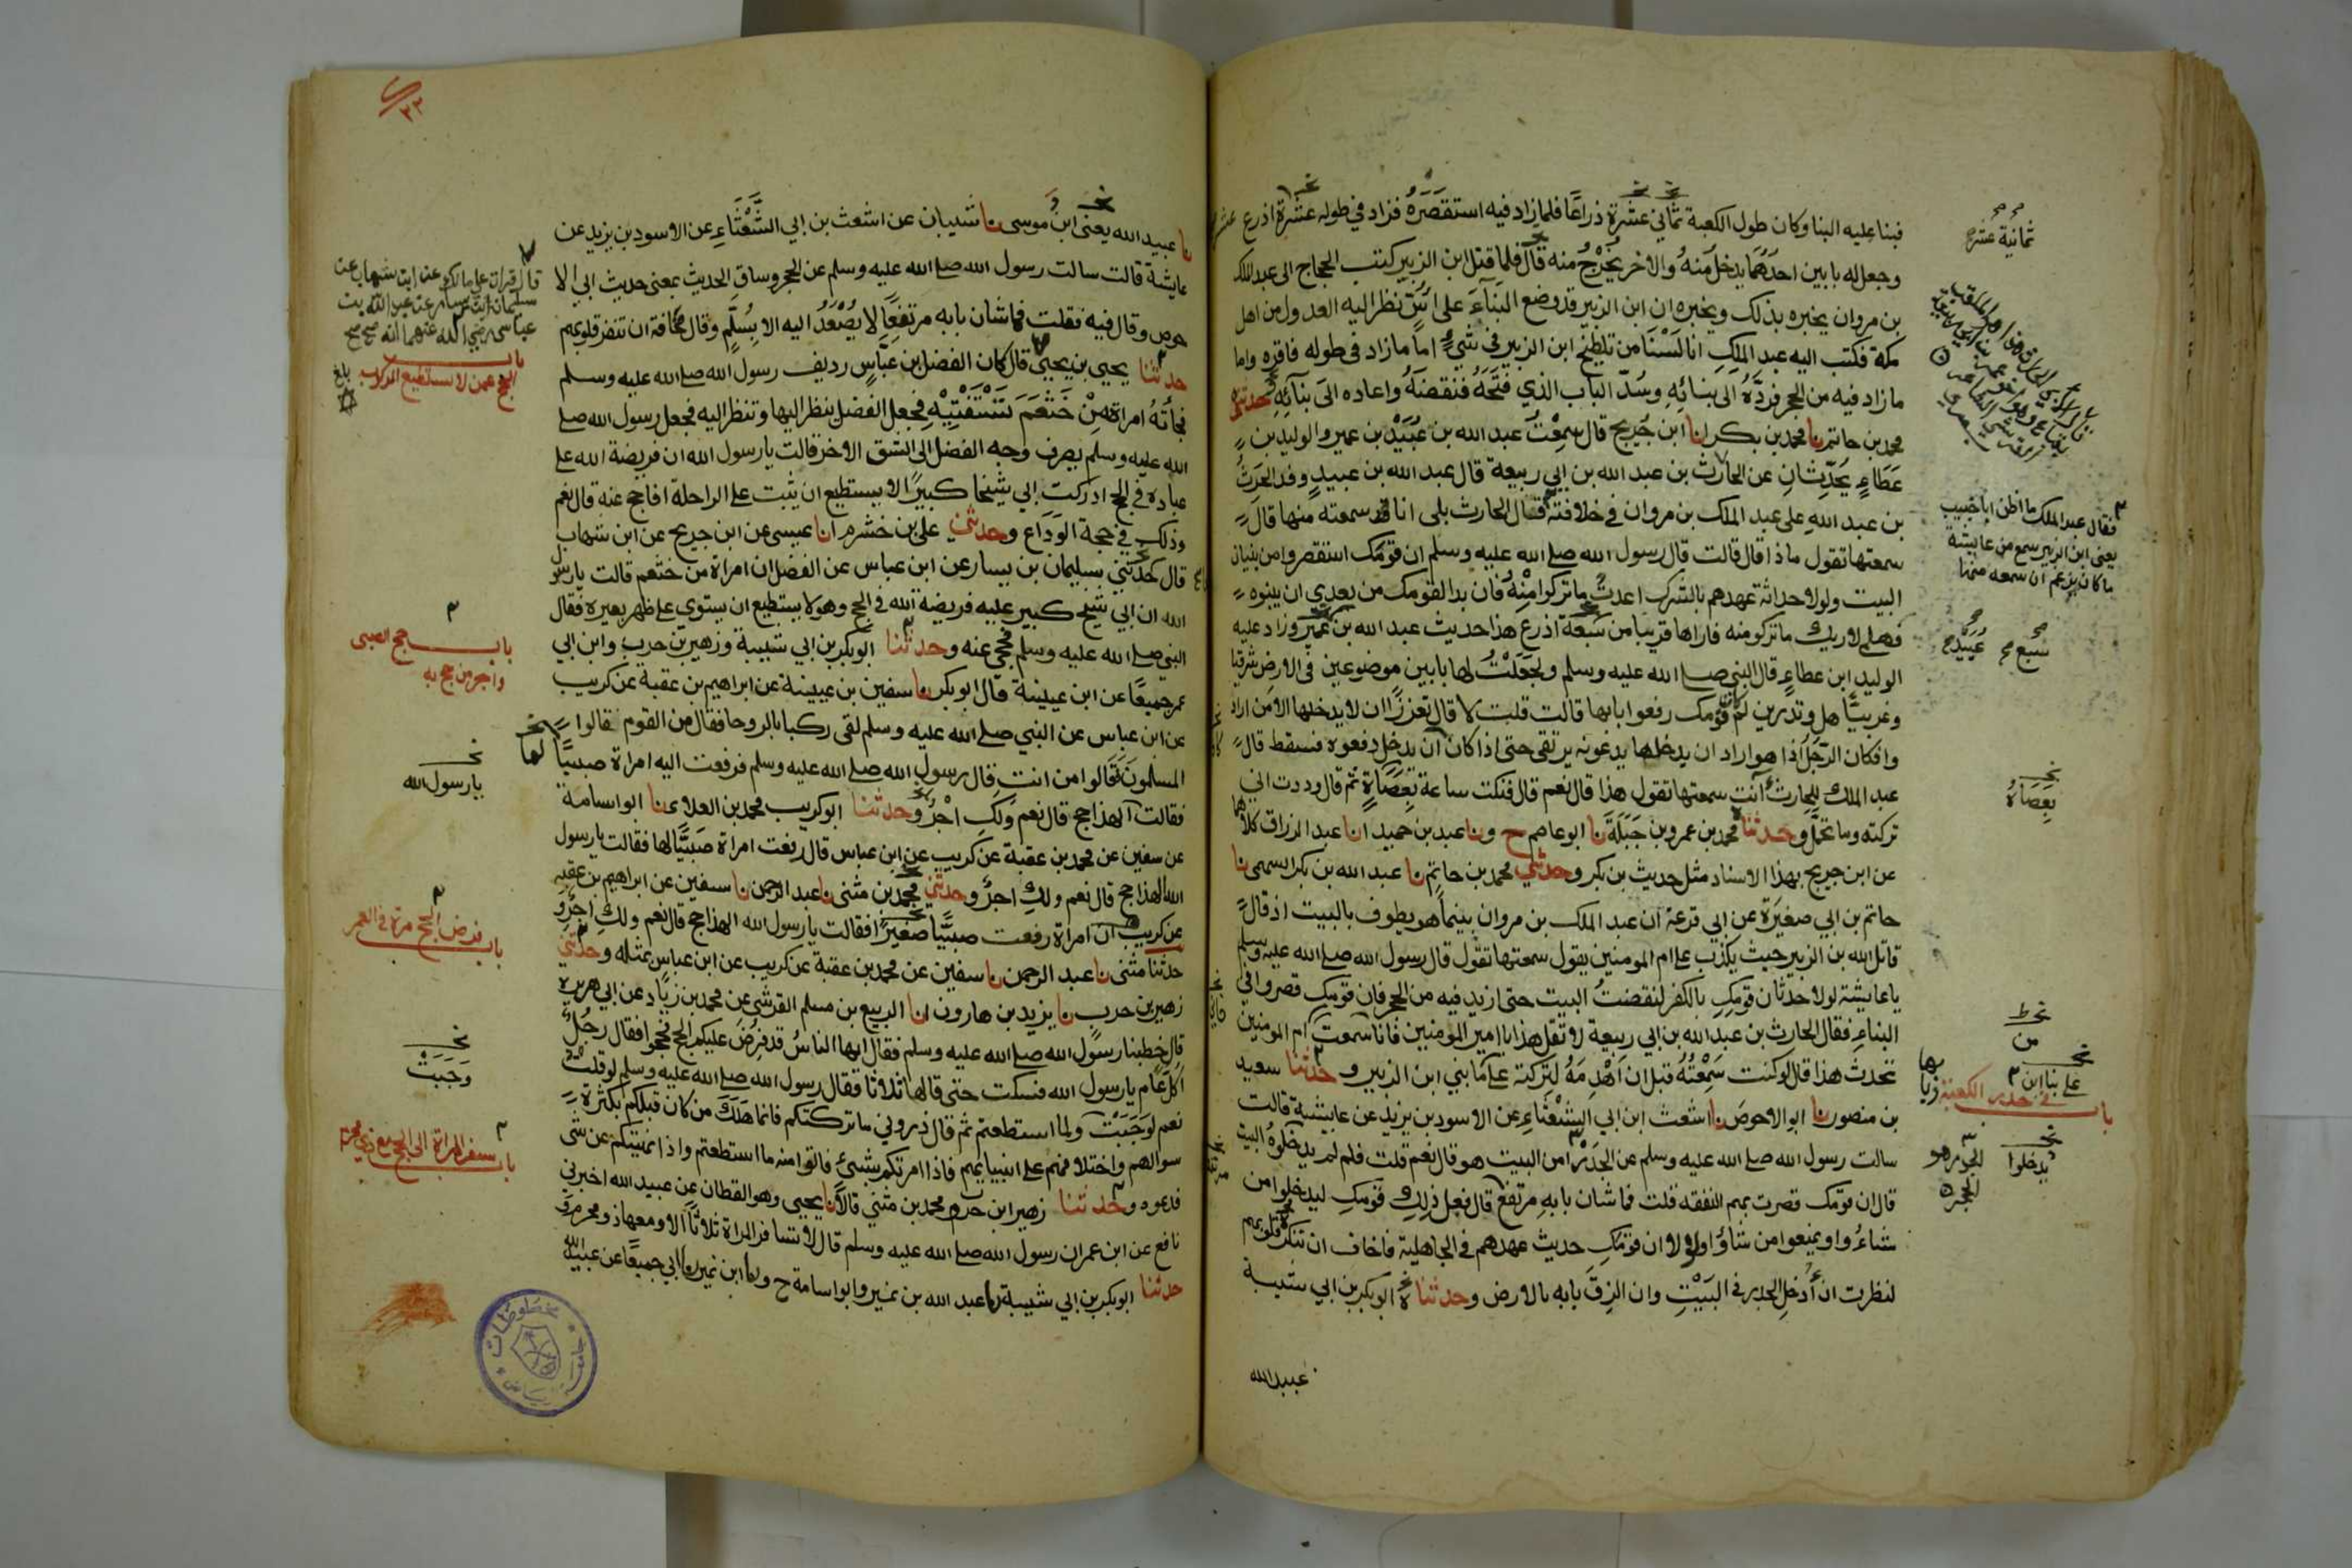 فبنا عليه البنا وكان طول الكعبة ثماني عشرة ذراعًا فلما زاد فيه استقصره فزاد في طوله عشرة اذرع
وجعل له بابين احدهما يدخل منه والاخر يخرج منه قال فلما قتل ابن الزبير كتب الحجاج الى عبد الملك
بن مروان يخبره بذلك ويخبره ان ابن الزبير قد وضع البناء على اس نظر اليه العدول من اهل
مكة فكتب اليه عبد الملك انا لسنا من تلطيخ ابن الزبير في شيء اما ما زاد في طوله فاقره واما
ما زاد فيه من الحجر فرده الى بنائه وسد الباب الذي فتحه فنقضه واعاده الى بنائه حدثني
محمد بن حاتم نا محمد بن بكر انا ابن جريج قال سمعت عبد الله بن عبيد بن عمير والوليد بن
عطاء يحدثان عن الحارث بن عبد الله بن ابي ربيعة قال عبد الله بن عبيد وفد الحرث
بن عبد الله على عبد الملك بن مروان في خلافته فقال الحارث بلى انا سمعته منها قال
سمعتها تقول ماذا قال قالت قال رسول الله صلى الله عليه وسلم ان قومك استقصروا من بنيان
البيت ولولا حداثة عهدهم بالشرك اعدت ما تركوا منه فان بدا لقومك من بعدي ان يبنوه
فهلمي لاريك ما تركو منه فاراها قريبا من سبعة اذرع هذا حديث عبد الله بن عمير وزاد عليه
الوليد ابن عطاء قال النبي صلى الله عليه وسلم ولجعلت لها بابين موضوعين في الارض شرقيا
وغربيًّا هل وتدرين لم كان قومك رفعوا بابها قالت قلت لا قال تعززًا ان لا يدخلها الا من اراد
وا فكان الرجل اذا هو اراد ان يدخلها يدعونه يرتقي حتى اذا كان ان يدخل دفعوه فسقط قال
عبد الملك للحارث انت سمعتها تقول هذا قال نعم قال فنكت ساعة بعصاة ثم قال وددت اني
تركته وما تحمل وحدثنا محمد بن عمرو بن جبلة نا ابو عاصم ح ونا عبد بن حميد انا عبد الرزاق كلاهما
عن ابن جريج بهذا الاسناد مثل حديث بن بكر وحدثني محمد بن حاتم نا عبد الله بن بكر السهمي نا
حاتم بن ابي صغيرة عن ابي قزعة ان عبد الملك بن مروان بينما هو يطوف بالبيت اذ قال
قاتل الله بن الزبير حيث يكذب على ام المومنين يقول سمعتها تقول قال رسول الله صلى الله عليه وسلم
يا عايشة لولا حدثان قومك بالكفر لنقضت البيت حتى ازيد فيه من الحجر فان قومك قصروا في
البناء فقال الحارث بن عبد الله بن ابي ربيعة لا تقل هذا يا امير المومنين فانا سمعت ام المومنين
تحدث هذا قال لو كنت سمعته قبل ان اهدمه لتركته على ما بني ابن الزبير وحدثنا سعيد
بن منصور نا ابو الاحوص نا اشعث ابن ابي الشعثاء عن الاسود بن يزيد عن عايشة قالت
سالت رسول الله صلى الله عليه وسلم عن الجدر امن البيت هو قال نعم قلت فلم لم يدخلوه البيت
قال ان قومك قصرت بهم النفقه قلت فما شان بابه مرتفع قال فعل ذلك قومك ليدخلوا من
شاءوا ويمنعوا من شاؤا ولولا ان قومك حديث عهدهم في الجاهلية فاخاف ان تنكر قلوبهم
لنظرت ان ادخل الجدر في البيت وان الزق بابه بالارض وحدثناه ابو بكر بن ابي شيبة
عبيد الله
ثمانية عشره
فقال عبد الملك ما اظن ابا خبيب
يعني ابن الزبير سمع من عايشة
ما كان يزعم انه سمعه منها
سبع عبيد
بعصاه
من
على بنا ابن
باب في جدر الكعبة وبابها
يدخلوا
نا عبيد الله يعني ابن موسى نا شيبان عن اشعث بن ابي الشعثاء عن الاسود بن يزيد عن
عايشة قالت سالت رسول الله صلى الله عليه وسلم عن الحجر وساق الحديث بمعنى حديث ابي الا
حوص وقال فيه فقلت فما شان بابه مرتفعا لا يصعد اليه الا بسلم وقال مخافة ان تنفر قلوبهم
حدثنا يحيى بن يحيى قال كان الفضل بن عباس رديف رسول الله صلى الله عليه وسلم
فجاته امراة من خثعم تستفتيه فجعل الفضل ينظر اليها وتنظر اليه فجعل رسول الله صلى
الله عليه وسلم يصرف وجه الفضل الى الشق الاخر قالت يا رسول الله ان فريضة الله على
عباده في الحج ادركت ابي شيخا كبيرًا لا يستطيع ان يثبت على الراحلة افاحج عنه قال نعم
وذلك في حجة الوداع وحدثني علي بن خشرم انا عيسى عن ابن جريج عن ابن شهاب
قال حدثني سليمان بن يسار عن ابن عباس عن الفضل ان امراة من خثعم قالت يا رسول
الله ان ابي شيخ كبير عليه فريضة الله في الحج وهو لا يستطيع ان يستوي على ظهر بعيره فقال
النبي صلى الله عليه وسلم فحجي عنه وحدثنا ابو بكر بن ابي شيبة وزهير بن حرب وابن ابي
عمر جميعًا عن ابن عيينة قال ابو بكر نا سفين بن عيينة عن ابراهيم بن عقبة عن كريب
عن ابن عباس عن النبي صلى الله عليه وسلم لقى ركبا بالروحا فقال من القوم قالوا
المسلمون فقالوا من انت قال رسول الله صلى الله عليه وسلم فرفعت اليه امراة صبيًّا
فقالت الهذا حج قال نعم ولك اجر وحدثنا ابو كريب محمد بن العلاء نا ابو اسامة
عن سفين عن محمد بن عقبة عن كريب عن ابن عباس قال رفعت امراة صبيًّا لها فقالت يا رسول
الله الهذا حج قال نعم ولك اجر وحدثني محمد بن مثنى نا عبد الرحمن نا سفين عن ابراهيم بن عقبه
عن كريب ان امراة رفعت صبيًّا صغيرًا فقالت يا رسول الله الهذا حج قال نعم ولك اجر و
حدثنا مثنى نا عبد الرحمن نا سفين عن محمد بن عقبة عن كريب عن ابن عباس بمثله وحدثني
زهير بن حرب نا يزيد بن هارون انا الربيع بن مسلم القرشي عن محمد بن زياد عن ابي هريرة
قال خطبنا رسول الله صلى الله عليه وسلم فقال ايها الناس قد فرض عليكم الحج فحجوا فقال رجل
اكل عام يا رسول الله فسكت حتى قالها ثلاثا فقال رسول الله صلى الله عليه وسلم لو قلت
نعم لوجبت ولما استطعتم ثم قال ذروني ما تركتكم فانما هلك من كان قبلكم بكثرة
سوالهم واختلافهم على انبيايهم فاذا امرتكم بشيء فاتوا منه ما استطعتم واذا نهيتكم عن شي
فدعوه وحدثنا زهير ابن حرب ومحمد بن مثنى قالا نا يحيى وهو القطان عن عبيد الله اخبرني
نافع عن ابن عمر ان رسول الله صلى الله عليه وسلم قال لا تسافر المراة ثلاثًا الا ومعها ذو محرم
حدثنا ابو بكر بن ابي شيبة نا عبد الله بن نمير وابو اسامة ح ونا ابن نمير نا ابي جميعًا عن عبيد الله
قال قرات على مالك عن ابن شهاب عن
سليمان ابن يسار عن عبد الله بن
عباس رضي الله عنهما انه صح صح
باب
الحج عمن لا يستطيع الركوب
بلغ
باب حج الصبى
واجر من حج به
لها
يا رسول الله
باب فرض الحج مرة في العمر
وجبت
باب سفر المراة الى الحج مع ذي محرم